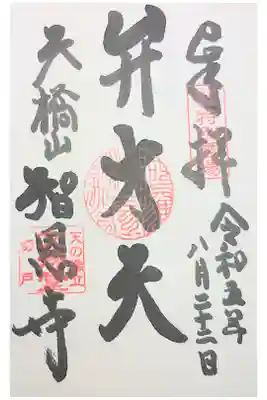 奉拝
令和五年
八月二十二日
弁才天
天橋山
智恩寺